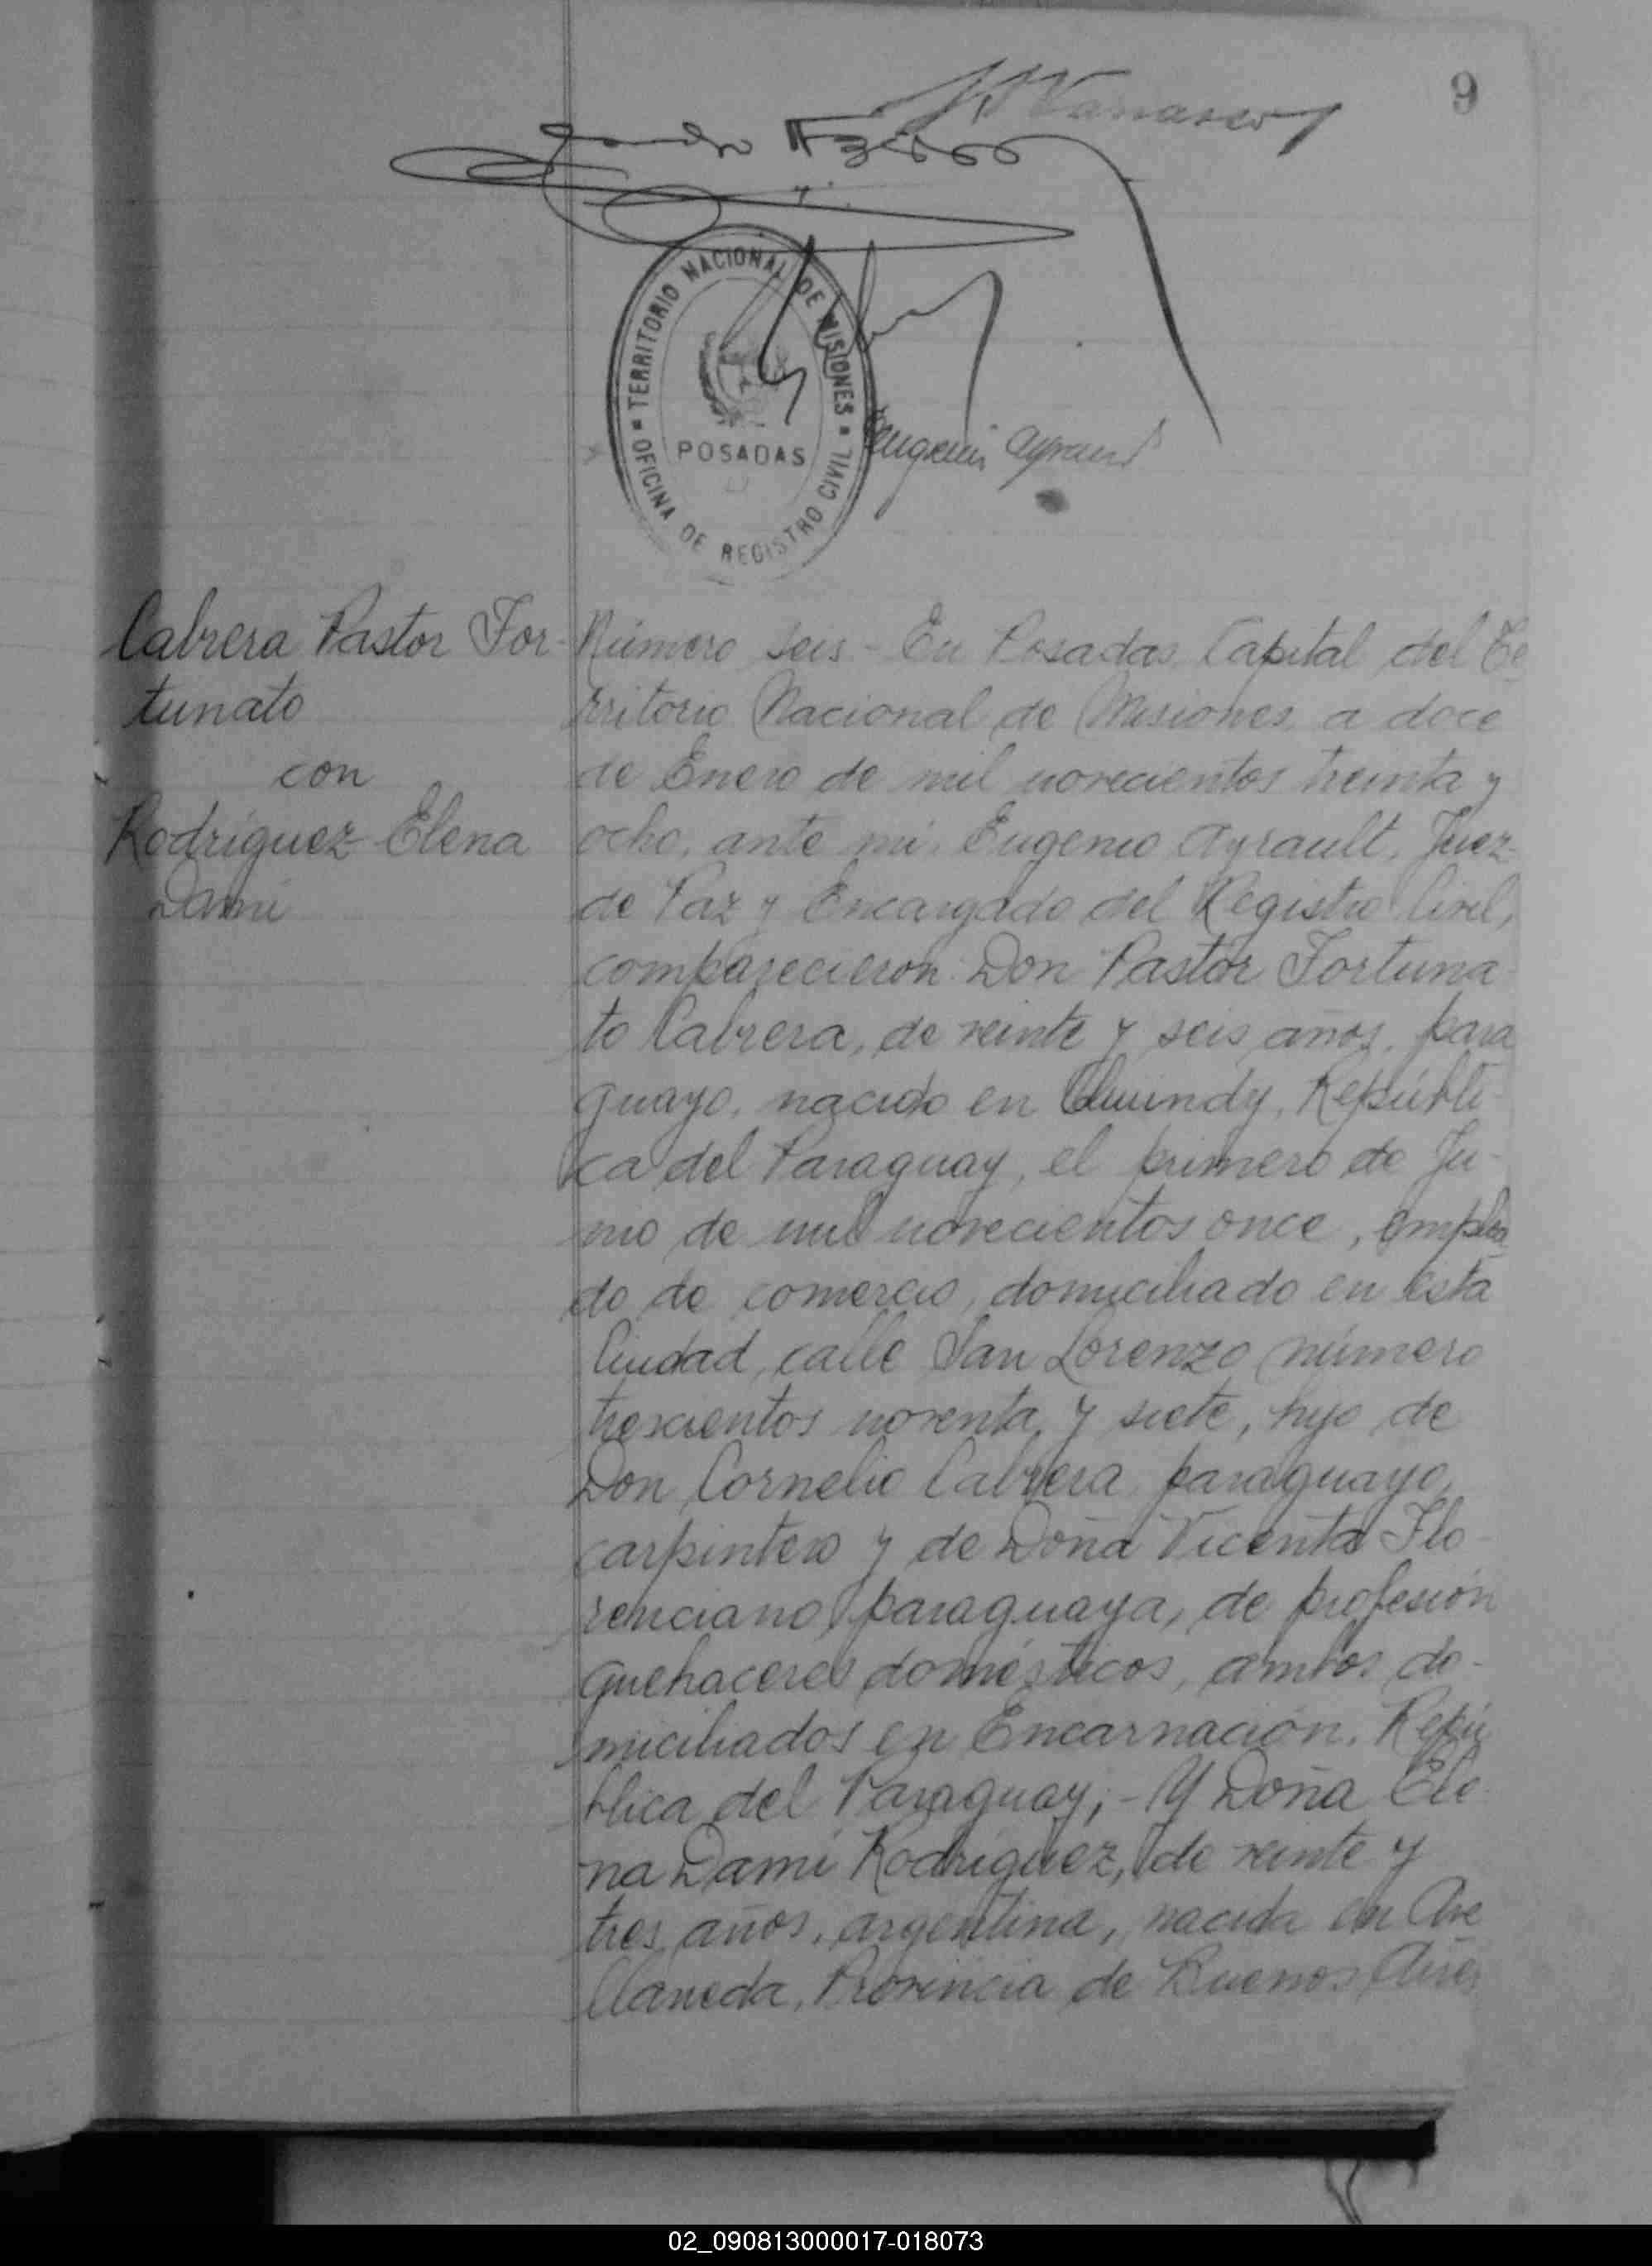 9
TERRITORIO NACIONAL DE MISIONES
POSADAS
OFICINA DE REGISTRO CIVIL
Cabrera Pastor For-
tunato
con
Rodríguez Elena
Dami
Número seis - En Posadas Capital del Te-
rritorio Nacional de Misiones, a doce
de Enero de mil novecientos treinta y
ocho, ante mi, Eugenio Ayrault, Juez
de Paz y Encargado del Registro Civil,
comparecieron: Don Pastor Fortuna-
to Cabrera, de veinte y seis años, para
guayo, nacido en Quindy, Repúbli-
ca del Paraguay, el primero de Ju-
nio de mil novecientos once, emplea-
do de comercio, domiciliado en esta
Ciudad, calle San Lorenzo número
trescientos noventa y siete, hijo de
Don Cornelio Cabrera, paraguayo,
carpintero y de Doña Vicenta Flo-
renciano, paraguaya, de profesión
quehaceres domésticos, ambos do-
miciliados en Encarnación, Repú
blica del Paraguay; - Y Doña Ele-
na Dami Rodríguez, de veinte y
tres años, argentina, nacida en Ave
llaneda, Provincia de Buenos Aires
02_090813000017-018073